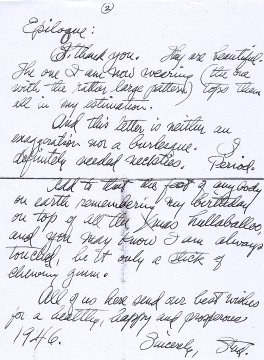 (2)
Epilogue:
I thank you. They are beautiful.
The one I am now wearing (the one
with the rather large pattern) tops them
all in my estimation.
And this letter is neither an
exaggeration nor a burlesque. I
definitely needed neckties. Period.
Add to that the fact of anybody
on earth remembering my birthday
on top of all the Xmas hullaballoo,
and you may know I am always
touched, be it only a stick of
chewing gum.
All of us here send our best wishes
for a healthy, happy and prosperous
1946.
Sincerely,